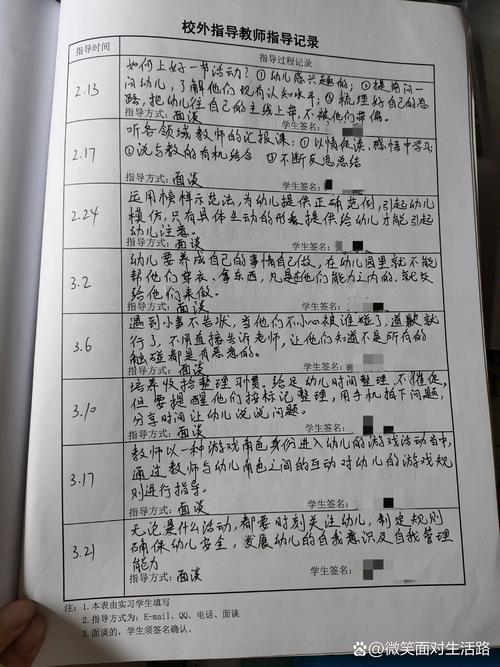 校外指导教师指导记录
指导时间 指导过程记录
2.13
如何上好一节活动?①幼儿感兴趣的;②提前问一
问幼儿,了解他们现有认知水平;③梳理好自己的思
路,把幼儿往自己的主线上带,不被他们带偏。
指导方式:面谈 学生签名:
2.17
听各领域教师的汇报课:①以情促读、感悟中学习
②说与教的有机结合 ③不断反思总结
指导方式:面谈 学生签名:
2.24
运用榜样示范法,为幼儿提供正确范例,引起幼儿
模仿,只有具体生动的形象提供给幼儿才能引起
幼儿注意。
指导方式:面谈 学生签名:
3.2
幼儿要养成自己的事情自己做,在幼儿园里就不能
帮他们穿衣、拿东西,凡是在他们能力之内的,就交
给他们来做。
指导方式:面谈 学生签名:
3.6
遇到小事不告状,当他们不小心被谁碰了,道歉就
行了,不用直接告诉老师,让他们知道不是所有的
触碰都是有恶意的。
指导方式:面谈 学生签名:
3.10
培养收拾整理习惯。给足幼儿时间整理,不催促,
但要提醒他们按标记整理,用手机拍下问题,
分享时间让幼儿说说问题。
指导方式:面谈 学生签名:
3.17
教师以一种游戏角色身份进入幼儿的游戏活动当中,
通过教师与幼儿角色之间的互动对幼儿的游戏规
则进行指导。
指导方式:面谈 学生签名:
3.21
无论是什么活动,都要时刻关注幼儿,制定规则
确保幼儿安全,发展幼儿的自我意识及自我管理
能力
指导方式:面谈 学生签名:
注:1.本表由实习学生填写
2.指导方式为:E-mail、QQ、电话、面谈
3.面谈的,学生须签名确认。
@微笑面对生活路